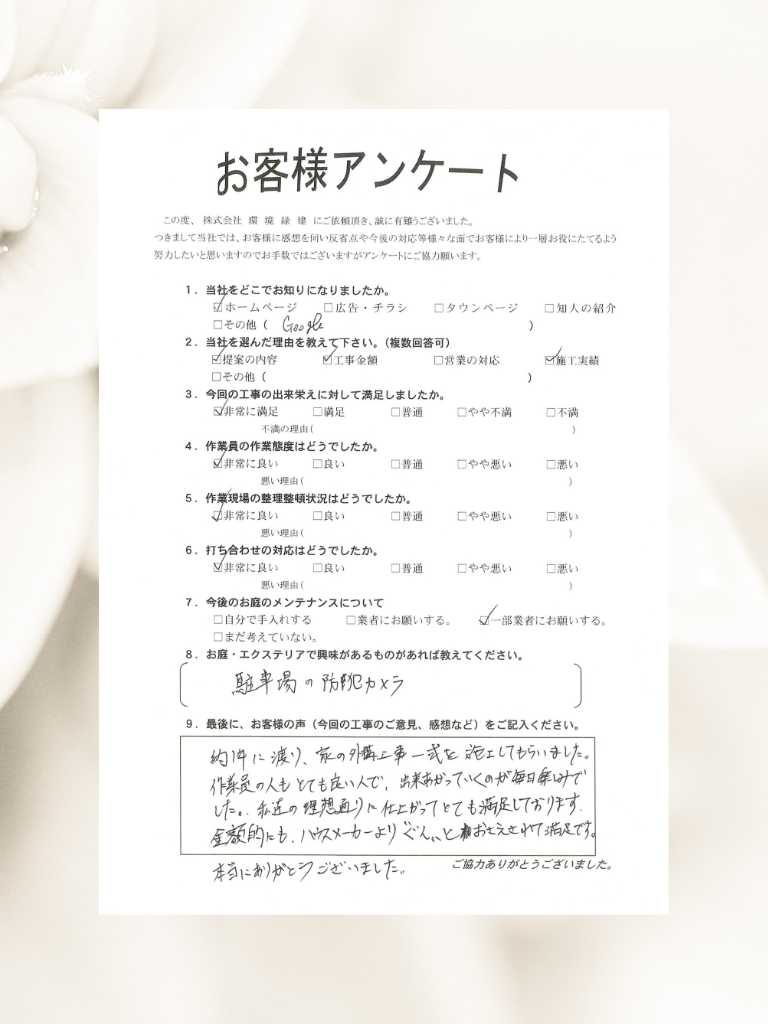 お客様アンケート
この度、 株式会社 環 境 緑 建 にご依頼頂き、誠に有難うございました。
つきまして当社では、お客様に感想を伺い反省点や今後の対応等様々な面でお客様により一層お役にたてるよう
努力したいと思いますのでお手数ではございますがアンケートにご協力願います。
1．当社をどこでお知りになりましたか。
☑ホームページ □広告・チラシ □タウンページ □知人の紹介
□その他（ Google ）
2．当社を選んだ理由を教えて下さい。（複数回答可）
☑提案の内容 ☑工事金額 □営業の対応 ☑施工実績
□その他（ ）
3．今回の工事の出来栄えに対して満足しましたか。
☑非常に満足 □満足 □普通 □やや不満 □不満
不満の理由（ ）
4．作業員の作業態度はどうでしたか。
☑非常に良い □良い □普通 □やや悪い □悪い
悪い理由（ ）
5．作業現場の整理整頓状況はどうでしたか。
☑非常に良い □良い □普通 □やや悪い □悪い
悪い理由（ ）
6．打ち合わせの対応はどうでしたか。
☑非常に良い □良い □普通 □やや悪い □悪い
悪い理由（ ）
7．今後のお庭のメンテナンスについて
□自分で手入れする □業者にお願いする。 ☑一部業者にお願いする。
□まだ考えていない。
8．お庭・エクステリアで興味があるものがあれば教えてください。
駐車場の防犯カメラ
9．最後に、お客様の声（今回の工事のご意見、感想など）をご記入ください。
約1年に渡り、家の外構工事一式を施工してもらいました。
作業員の人もとても良い人で、出来あがっていくのが毎日楽しみで
した。私達の理想通りに仕上がってとても満足しております。
金額的にも、ハウスメーカーよりぐんっとおさえられて満足です。
本当にありがとうございました。
ご協力ありがとうございました。